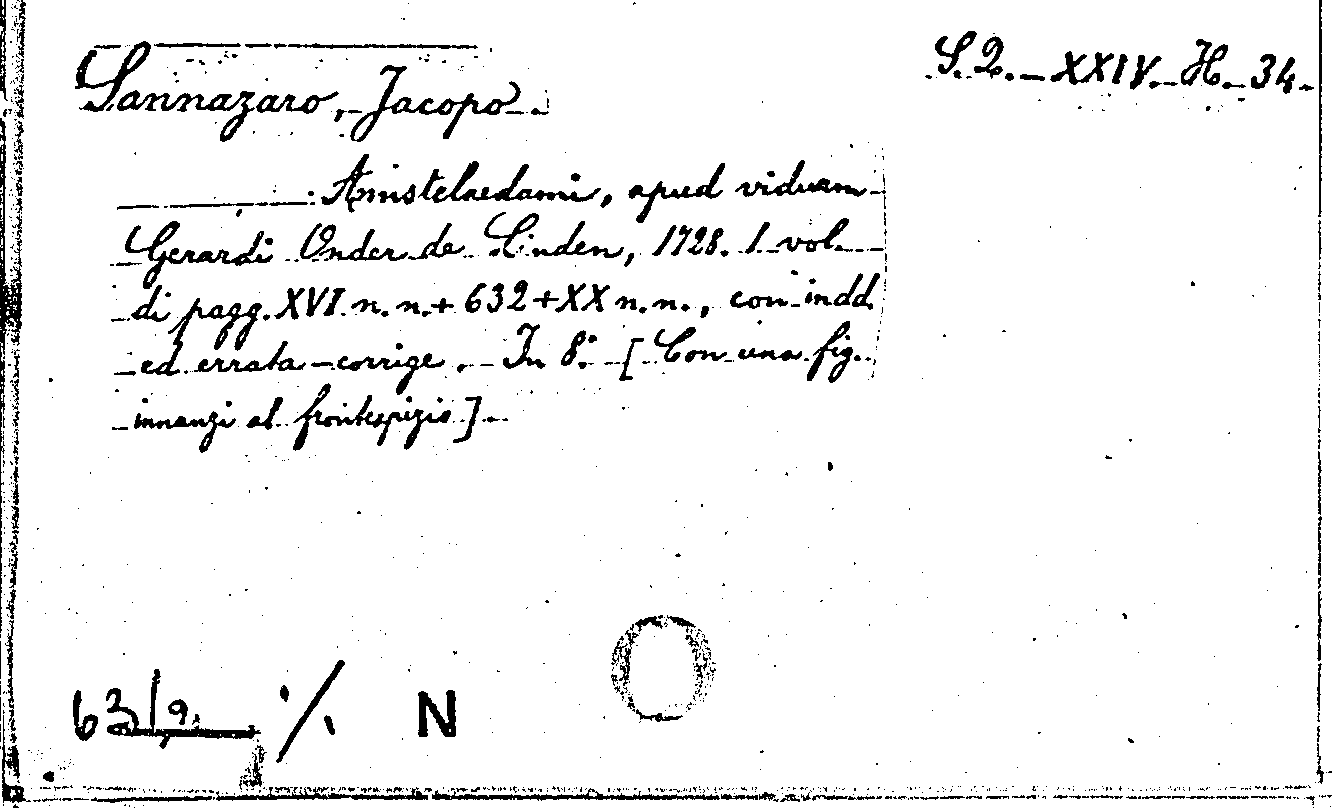 Sannazaro, Jacopo.
S. Q. XXIV. H. 34.
: Amstelaedami, apud viduam
Gerardi Onder de Linden, 1728. 1 vol.
di pagg. XVI n. n. + 632 + XX n. n., con indd.
ed errata-corrige. In 8.° [Con una fig.
innanzi al frontespizio].
N